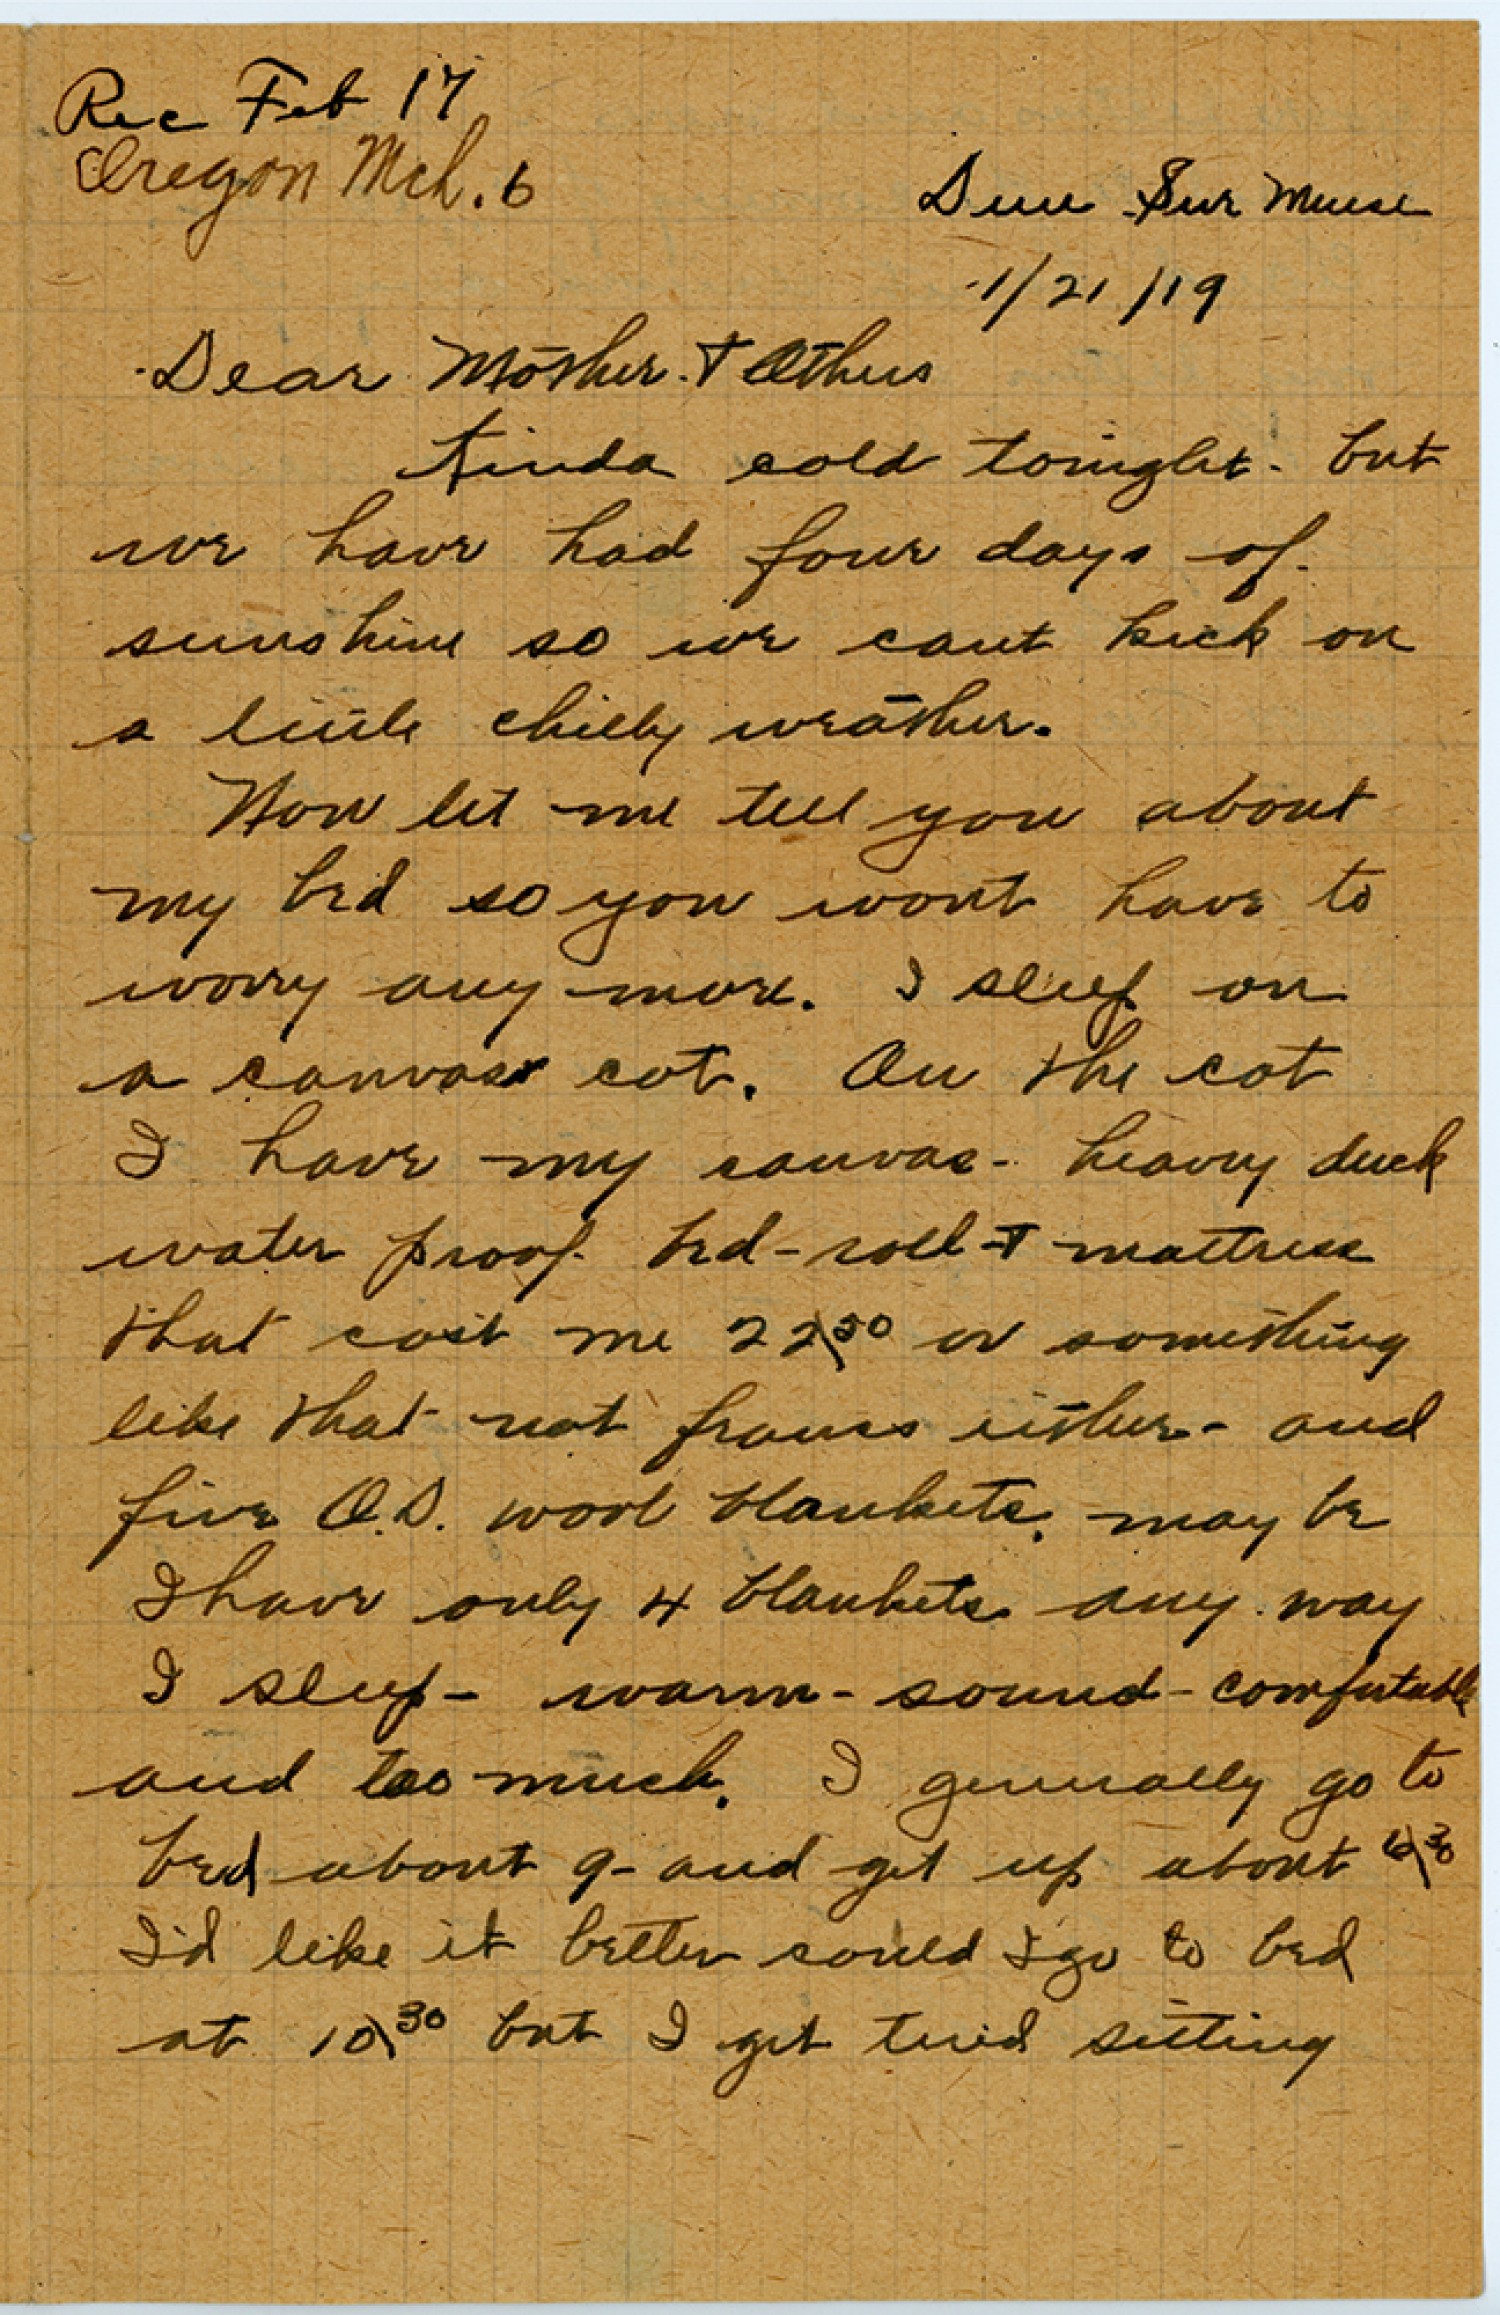 Rec Feb 17
Oregon Mch. 6
Dun Sur Meuse
1/21/19
Dear Mother & Others
Kinda cold tonight - but
we have had four days of
sunshine so we cant kick on
a little chilly weather.
Now let me tell you about
my bed so you wont have to
worry any more. I sleep on
a canvas cot. On the cot
I have my canvas - heavy duck
water proof bed-roll & mattress
that cost me 22\50 or something
like that not francs either - and
five O.D. wool blankets. may be
I have only 4 blankets any way
I sleep - warm - sound - comfortable
and too much. I generally go to
bed about 9 - and get up about 6\30
I'd like it better could I go to bed
at 10\30 but I get tired sitting